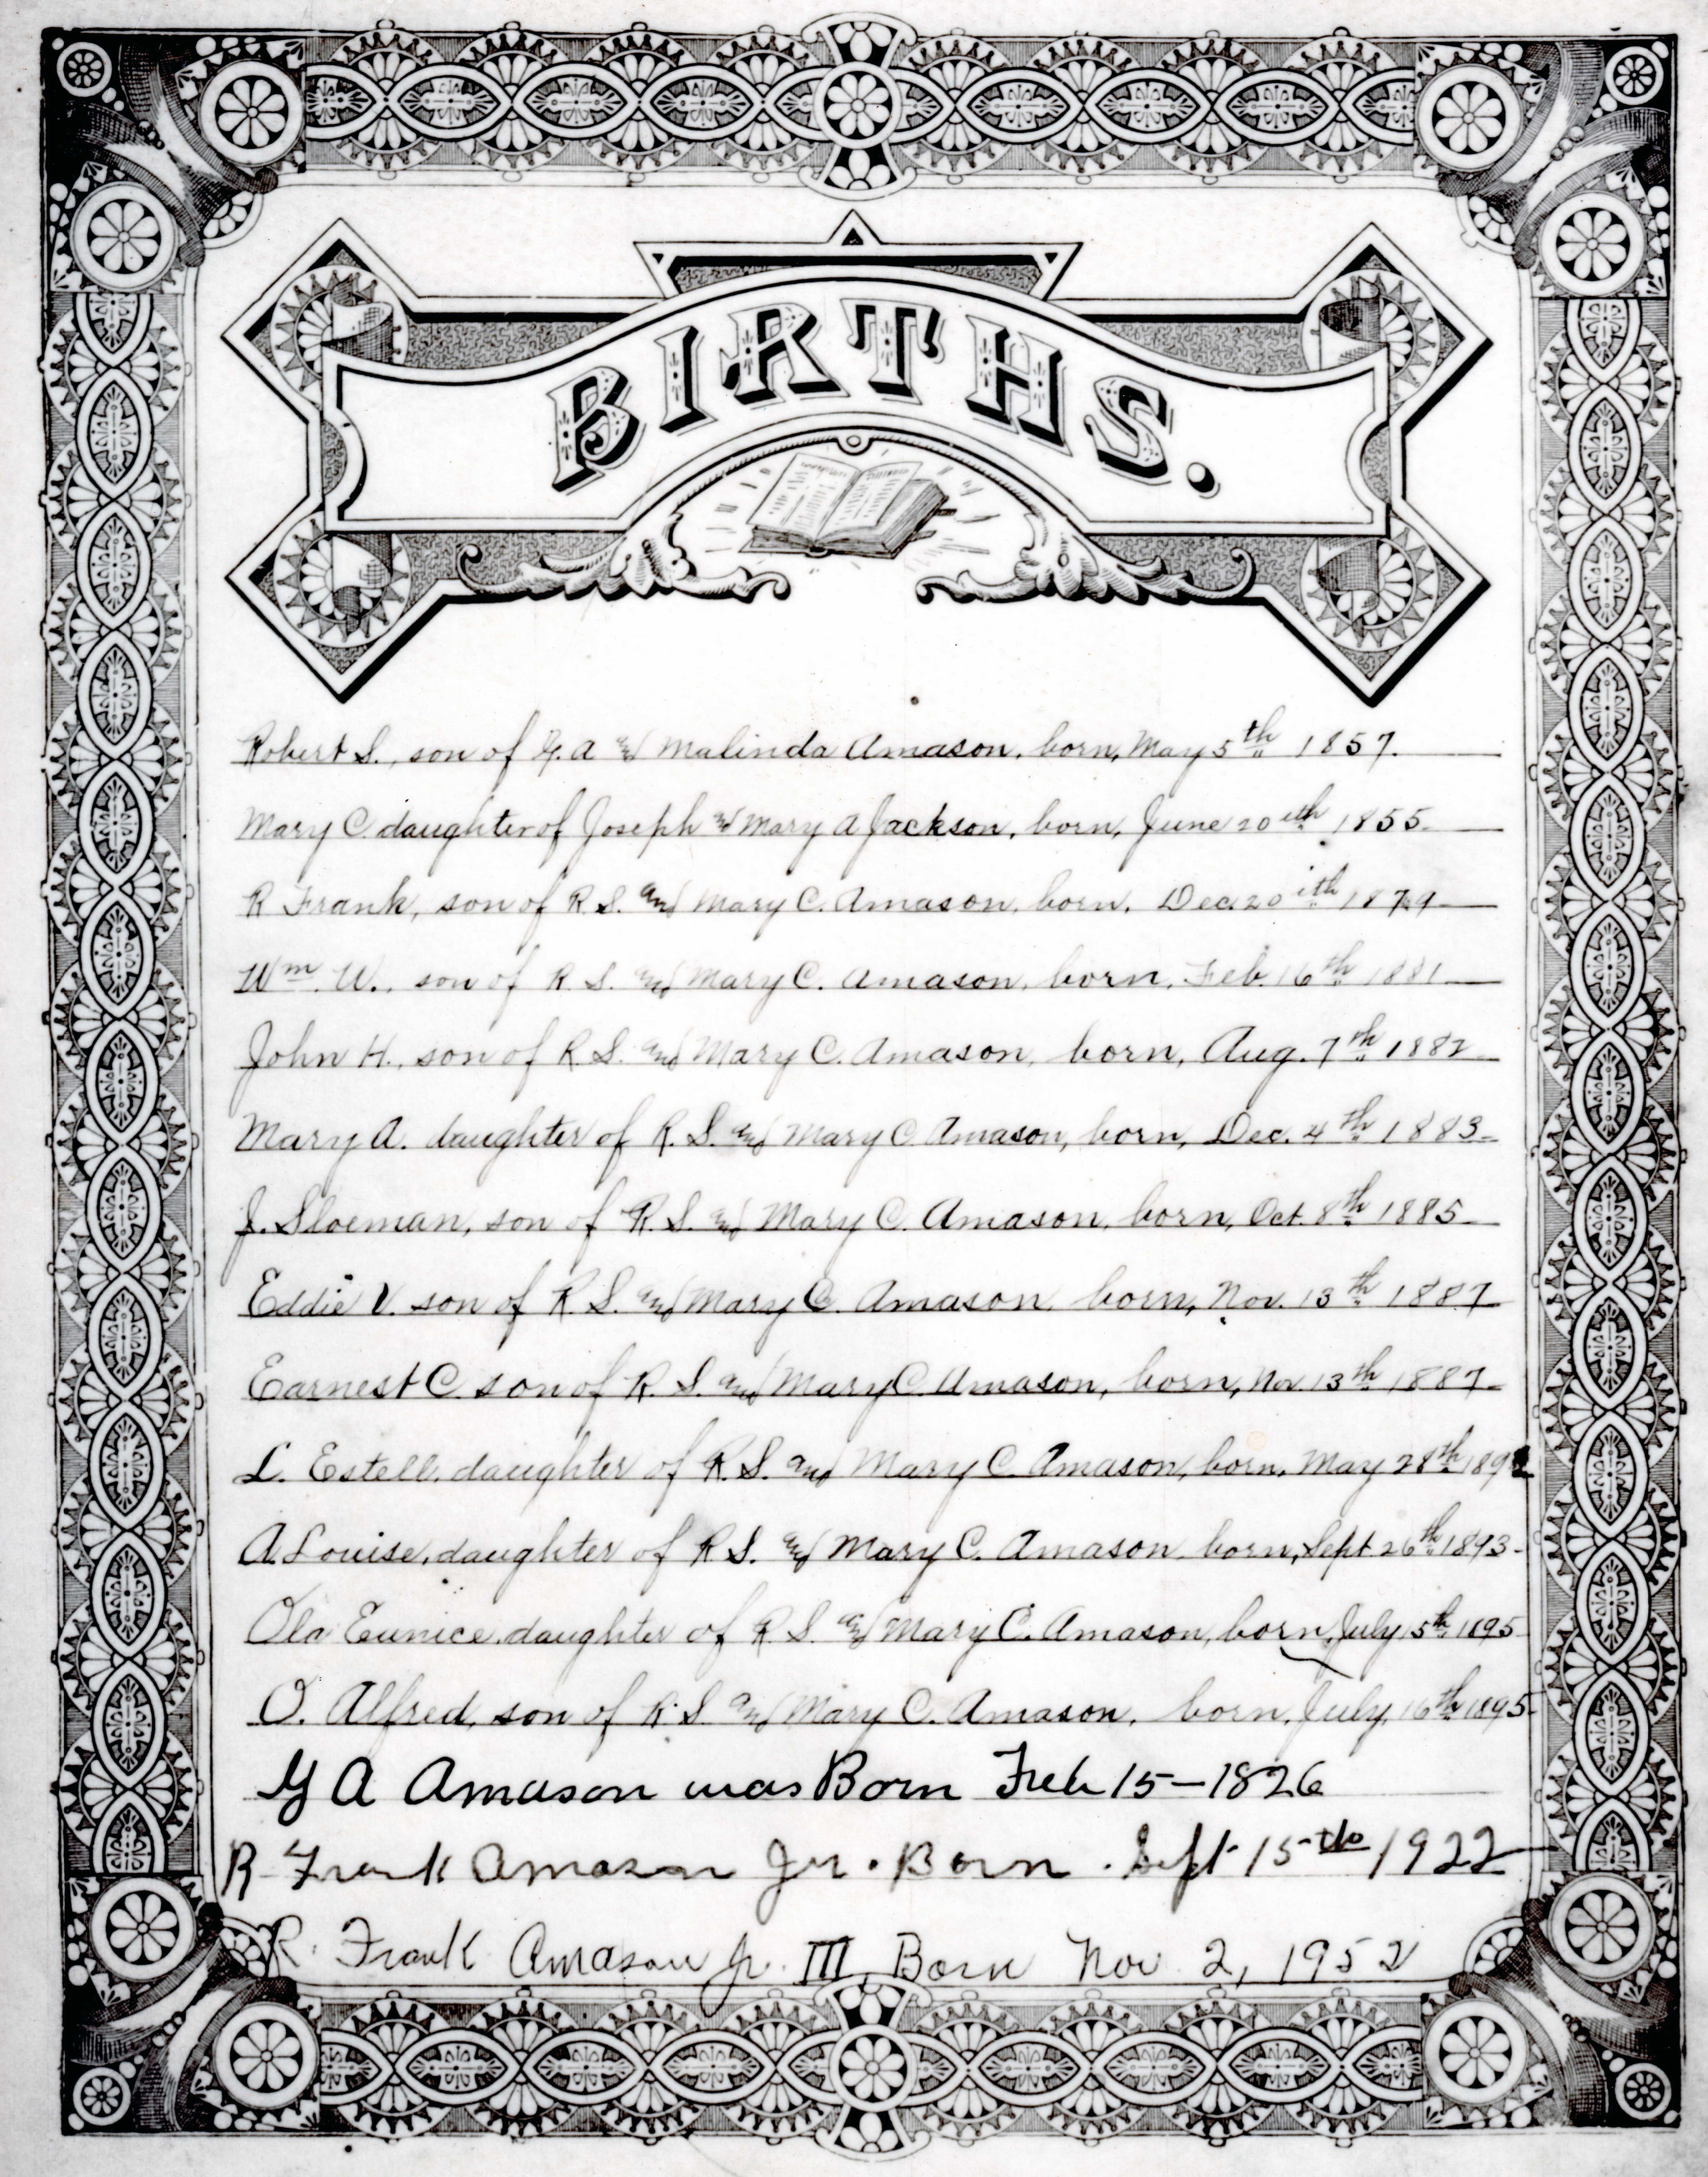 BIRTHS.
Robert S., son of G. A and Malinda Amason, born, May 5th 1857.
Mary C daughter of Joseph and Mary A Jackson, born, June 20ith 1855.
R Frank, son of R. S. and Mary C. Amason, born, Dec. 20ith 1879
Wm. W., son of R. S. and Mary C. Amason, born, Feb. 16th 1881
John H., son of R. S. and Mary C. Amason, born, Aug. 7th 1882
Mary A. daughter of R. S. and Mary C. Amason, born, Dec. 4th 1883
J. Sloeman, son of R. S. and Mary C. Amason, born, Oct. 8th 1885
Eddie V. son of R. S. and Mary C. Amason, born, Nov. 13th 1887
Earnest C. son of R. S. and Mary C. Amason, born, Nov 13th 1887
L. Estell, daughter of R. S. and Mary C. Amason, born, May 28th
A. Louise, daughter of R. S. and Mary C. Amason born, Sept 26th 1893
Ola Eunice, daughter of R. S. and Mary C. Amason, born, July 15th 1895
O. Alfred, son of R. S. and Mary C. Amason, born, July, 16th 1895
G A Amason was Born Feb 15 – 1826
R Frank Amason Jr. Born. Sept 15th 1922
R. Frank Amason Jr. III, Born Nov 2, 1952